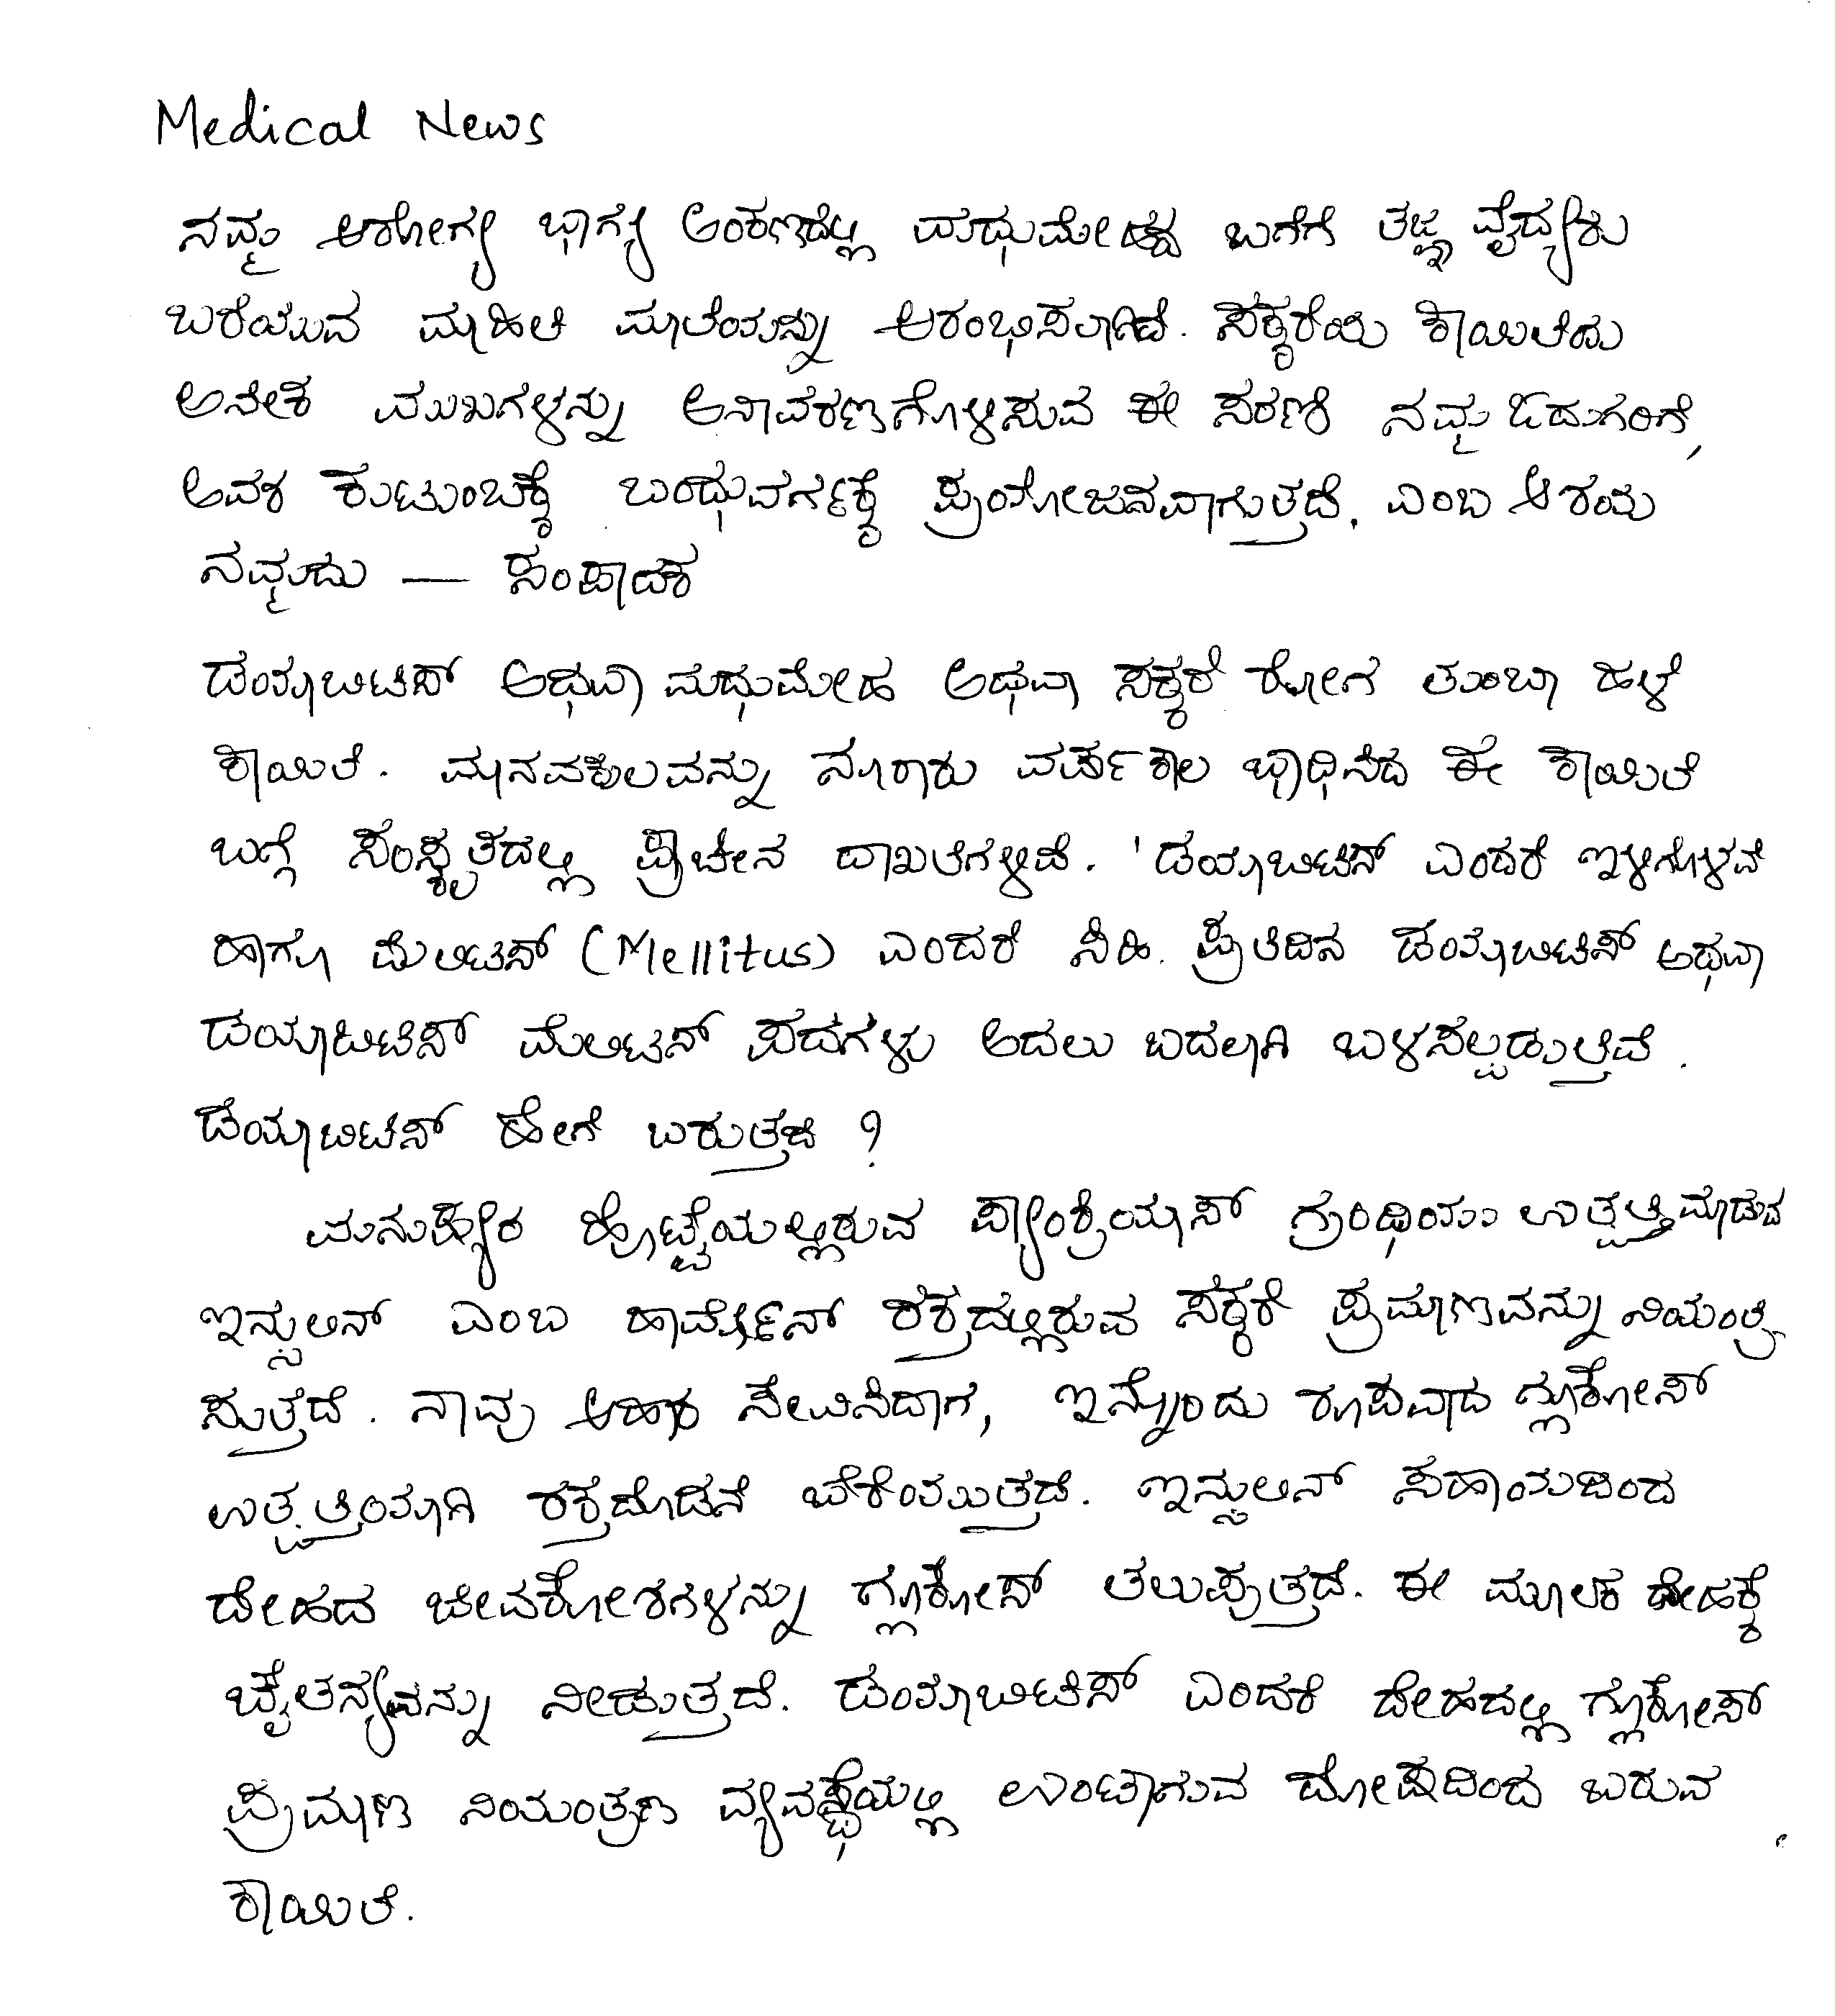 Medical News
ನಮ್ಮ ಆರೋಗ್ಯ ಭಾಗ್ಯ ಅಂಕಣದಲ್ಲಿ ಮಧುಮೇಹದ ಬಗೆಗೆ ತಜ್ಞ ವೈದ್ಯರು
ಬರೆಯುವ ಮಾಹಿತಿ ಮಾಲೆಯನ್ನು ಆರಂಭಿಸಲಾಗಿದೆ. ಸಕ್ಕರೆಯ ಕಾಯಿಲೆಯ
ಅನೇಕ ಮುಖಗಳನ್ನು ಅನಾವರಣಗೊಳಿಸುವ ಈ ಸರಣಿ ನಮ್ಮ ಓದುಗರಿಗೆ,
ಅವರ ಕುಟುಂಬಕ್ಕೆ ಬಂಧುವರ್ಗಕ್ಕೆ ಪ್ರಯೋಜನವಾಗುತ್ತದೆ, ಎಂಬ ಆಶಯ
ನಮ್ಮದು — ಸಂಪಾದಕ
ಡಯಾಬಿಟಿಸ್ ಅಥವಾ ಮಧುಮೇಹ ಅಥವಾ ಸಕ್ಕರೆ ರೋಗ ತುಂಬಾ ಹಳೆ
ಕಾಯಿಲೆ. ಮಾನವಕುಲವನ್ನು ನೂರಾರು ವರ್ಷಕಾಲ ಭಾಧಿಸಿದ ಈ ಕಾಯಿಲೆ
ಬಗ್ಗೆ ಸಂಸ್ಕೃತದಲ್ಲಿ ಪ್ರಾಚೀನ ದಾಖಲೆಗಳಿವೆ. 'ಡಯಾಬಿಟಿಸ್ ಎಂದರೆ ಇಳಿಗೊಳವೆ
ಹಾಗೂ ಮೆಲಿಟಸ್ (Mellitus) ಎಂದರೆ ಸಿಹಿ. ಪ್ರತಿದಿನ ಡಯಾಬಿಟಿಸ್ ಅಥವಾ
ಡಯಾಬಿಟಿಸ್ ಮೆಲಿಟಸ್ ಪದಗಳು ಅದಲು ಬದಲಾಗಿ ಬಳಸಲ್ಪಡುತ್ತಿವೆ.
ಡಯಾಬಿಟಿಸ್ ಹೇಗೆ ಬರುತ್ತದೆ ?
ಮನುಷ್ಯರ ಹೊಟ್ಟೆಯಲ್ಲಿರುವ ಪ್ಯಾಂಕ್ರಿಯಾಸ್ ಗ್ರಂಥಿಯು ಉತ್ಪತ್ತಿಮಾಡುವ
ಇನ್ಸುಲಿನ್ ಎಂಬ ಹಾರ್ಮೋನ್ ರಕ್ತದಲ್ಲಿರುವ ಸಕ್ಕರೆ ಪ್ರಮಾಣವನ್ನು ನಿಯಂತ್ರಿ
ಸುತ್ತದೆ. ನಾವು ಆಹಾರ ಸೇವಿಸಿದಾಗ, ಇನ್ನೊಂದು ರೂಪವಾದ ಗ್ಲೂಕೋಸ್
ಉತ್ಪತ್ತಿಯಾಗಿ ರಕ್ತದೊಡನೆ ಬೆರೆಯುತ್ತದೆ. ಇನ್ಸುಲಿನ್ ಸಹಾಯದಿಂದ
ದೇಹದ ಜೀವಕೋಶಗಳನ್ನು ಗ್ಲೂಕೋಸ್ ತಲುಪುತ್ತದೆ. ಈ ಮೂಲಕ ದೇಹಕ್ಕೆ
ಚೈತನ್ಯವನ್ನು ನೀಡುತ್ತದೆ. ಡಯಾಬಿಟಿಸ್ ಎಂದರೆ ದೇಹದಲ್ಲಿ ಗ್ಲೂಕೋಸ್
ಪ್ರಮಾಣ ನಿಯಂತ್ರಣ ವ್ಯವಸ್ಥೆಯಲ್ಲಿ ಉಂಟಾಗುವ ದೋಷದಿಂದ ಬರುವ
ಕಾಯಿಲೆ.